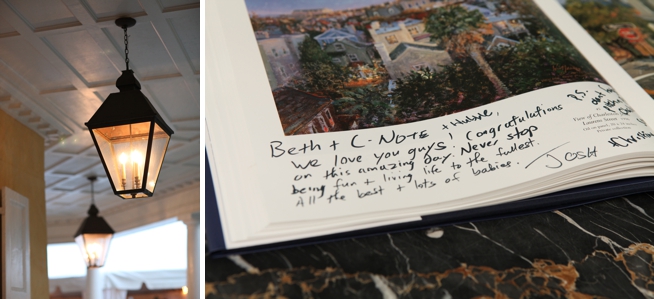 Beth + C-NOTE + Hubble,
We love you guys! Congratulations
on this amazing day. Never stop
being fun + living life to the fullest.
All the best + lots of babies.
JOSH
P.S.
View of Charleston